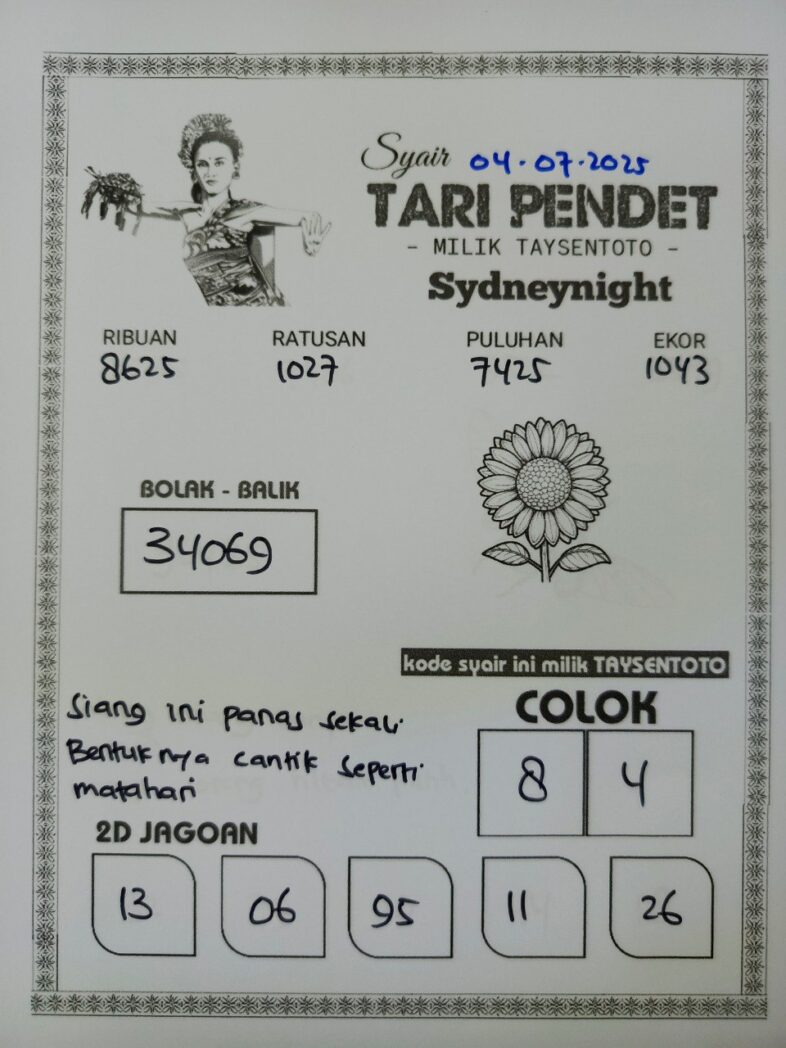 Syair 04.07.2025
TARI PENDET
- MILIK TAYSENTOTO -
Sydneynight
RIBUAN RATUSAN PULUHAN EKOR
8625 1027 7425 1043
BOLAK - BALIK
34069
kode syair ini milik TAYSENTOTO
COLOK
8 4
Siang ini panas sekali
Bentuknya cantik seperti
matahari
2D JAGOAN
13 06 95 11 26